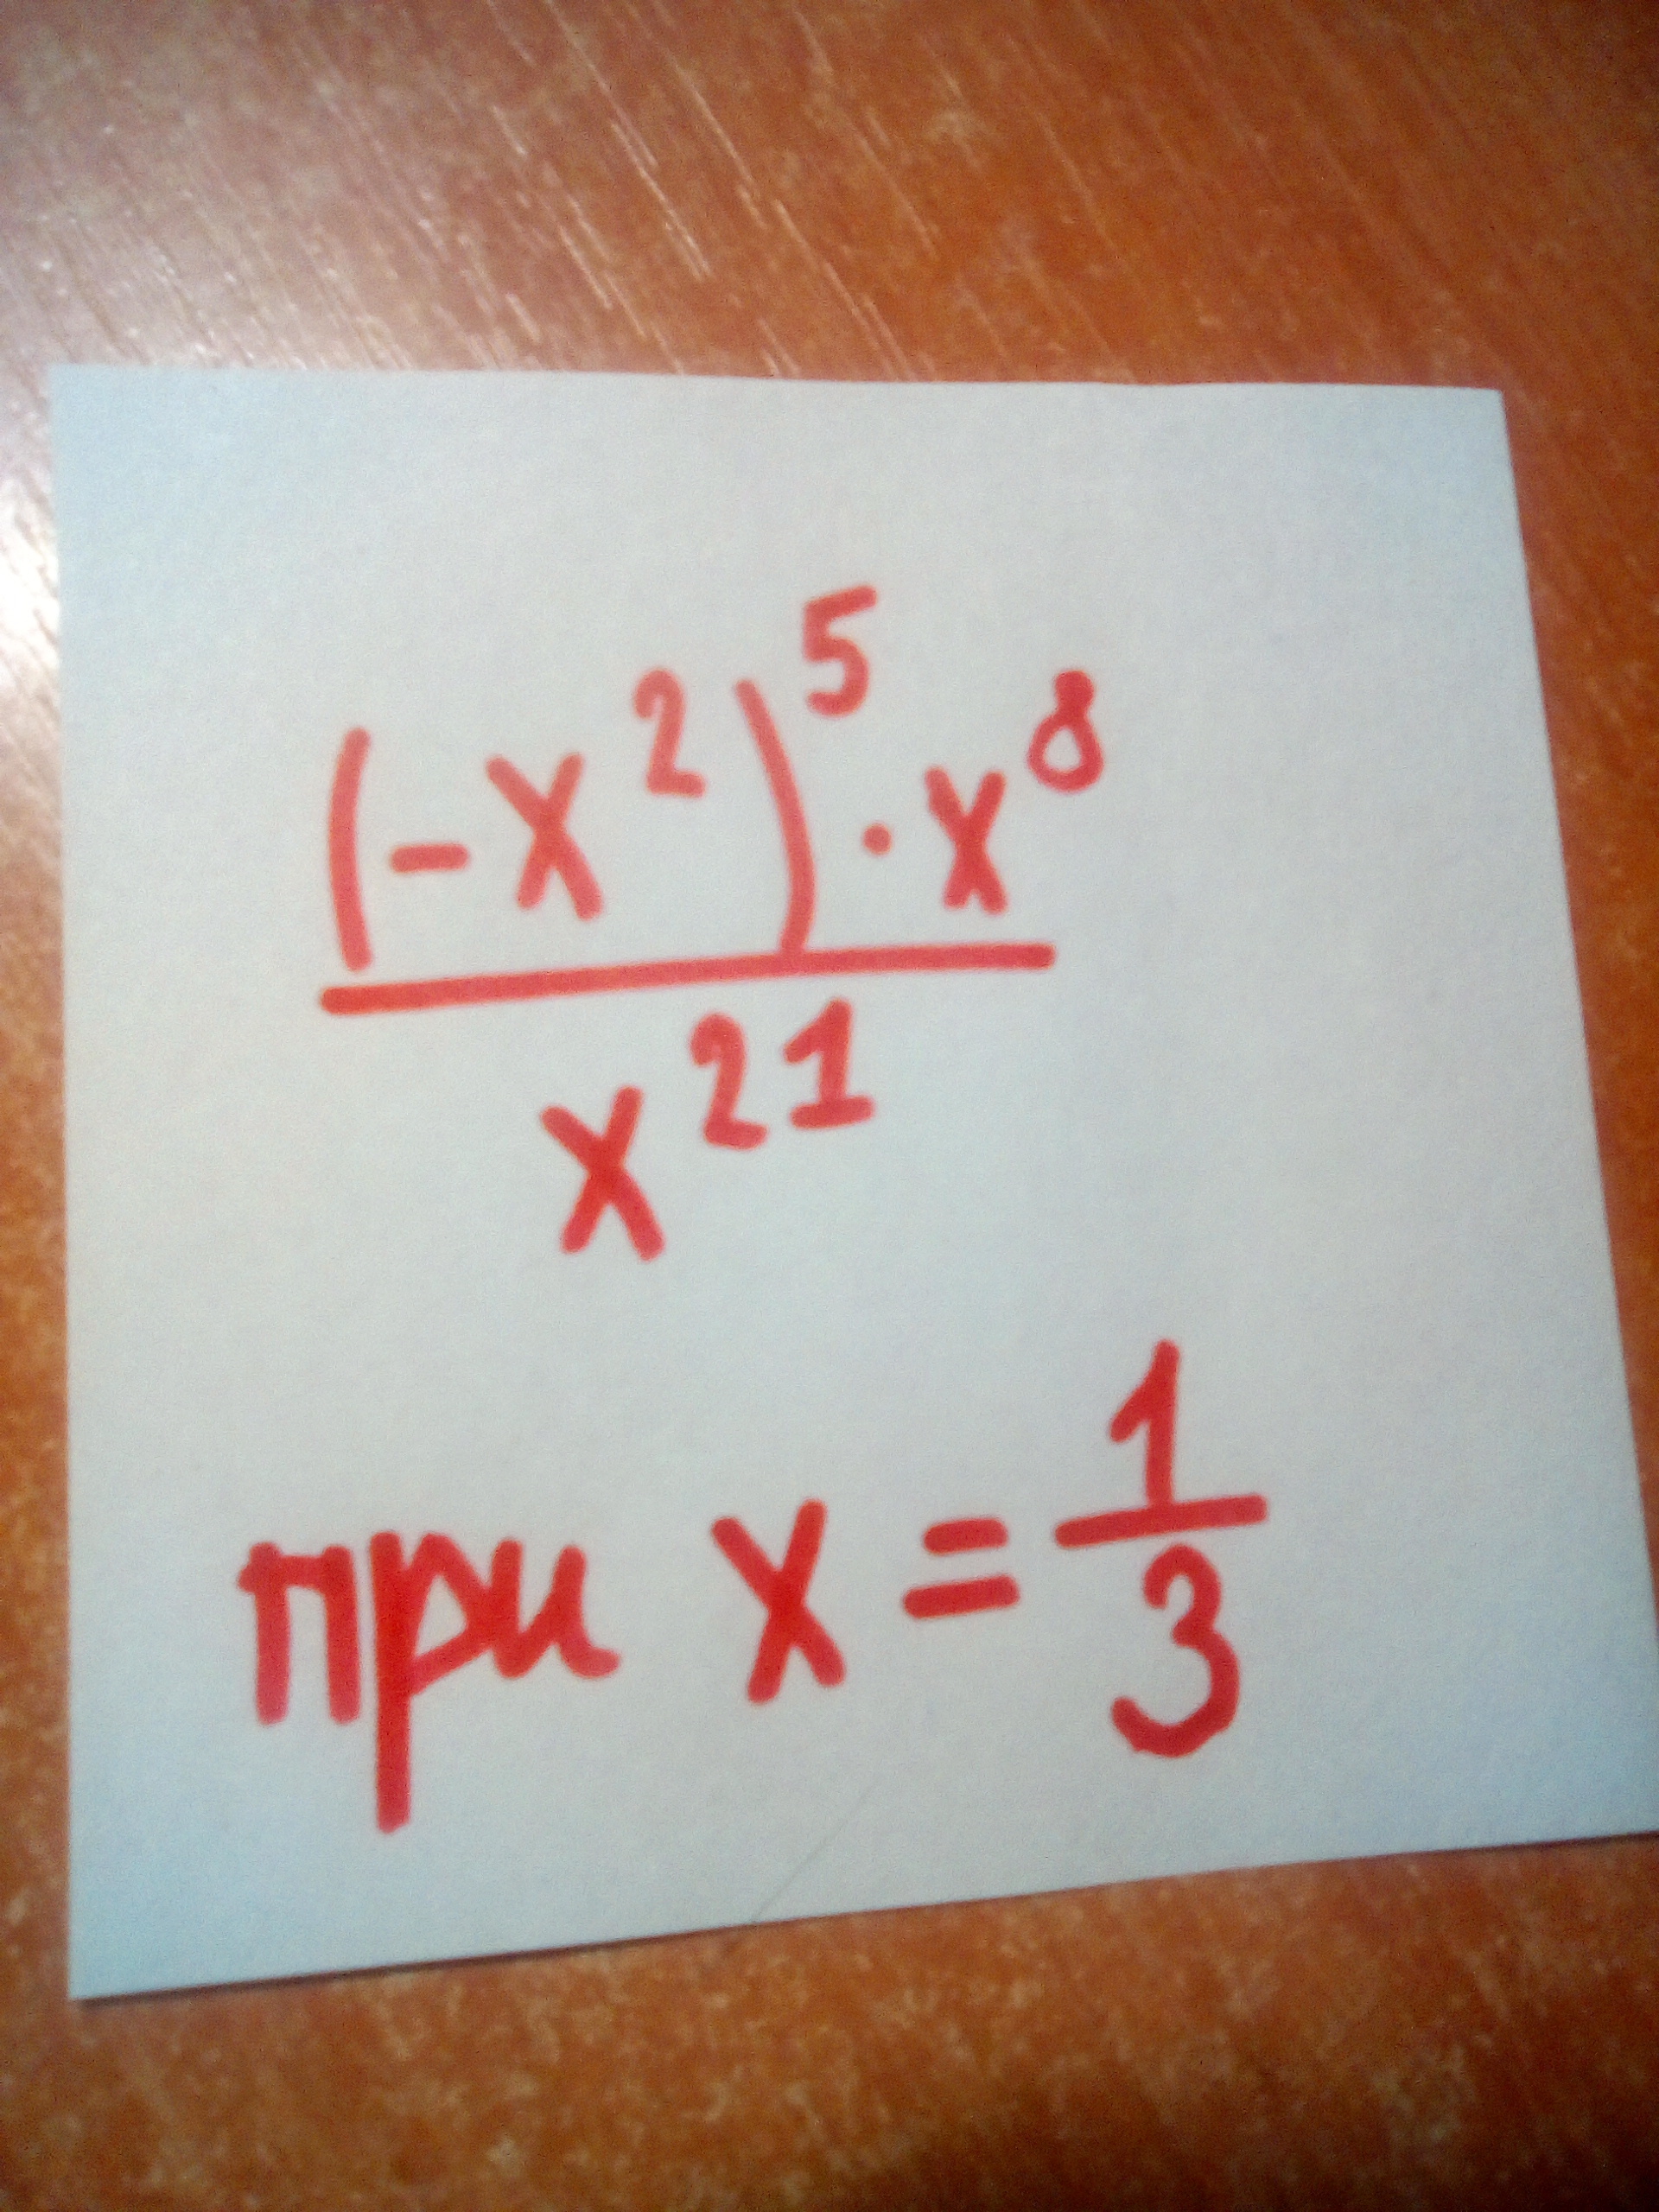 (-x²)⁵·x⁸
x²¹
при x = 1/3